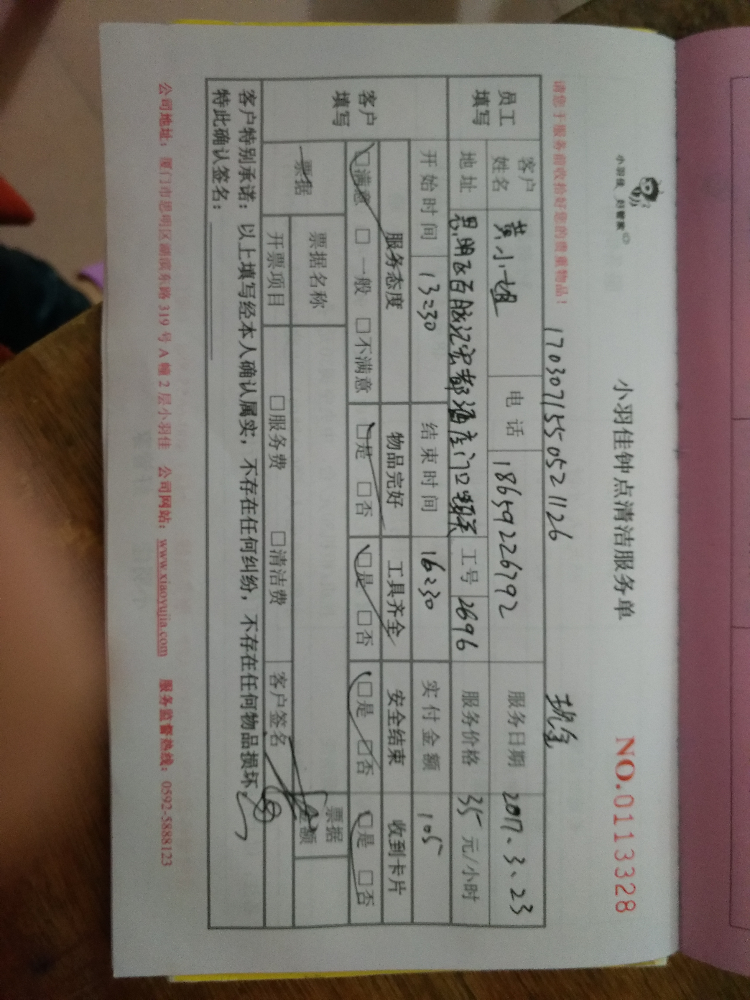 小羽佳 好管家
小羽佳钟点清洁服务单
NO.0113328
请您于服务前收拾好您的贵重物品！
1703071550521126 现金
员工填写
客户姓名 黄小姐 电话 18659226792 服务日期 2017.3.23
地址 思明区百脑汇宏都酒店门口 工号 2696 服务价格 35 元/小时
开始时间 13:30 结束时间 16:30 实付金额 105
客户填写
服务态度 物品完好 工具齐全 安全结束 收到卡片
□满意 □一般 □不满意 □是 □否 □是 □否 □是 □否 □是 □否
票据 票据名称 票据金额
开票项目 □服务费 □清洁费 客户签名
客户特别承诺：以上填写经本人确认属实，不存在任何纠纷，不存在任何物品损坏，
特此确认签名：
公司地址：厦门市思明区湖滨东路 319 号 A 幢 2 层小羽佳 公司网站：www.xiaoyujia.com 服务监督热线：0592-5888123